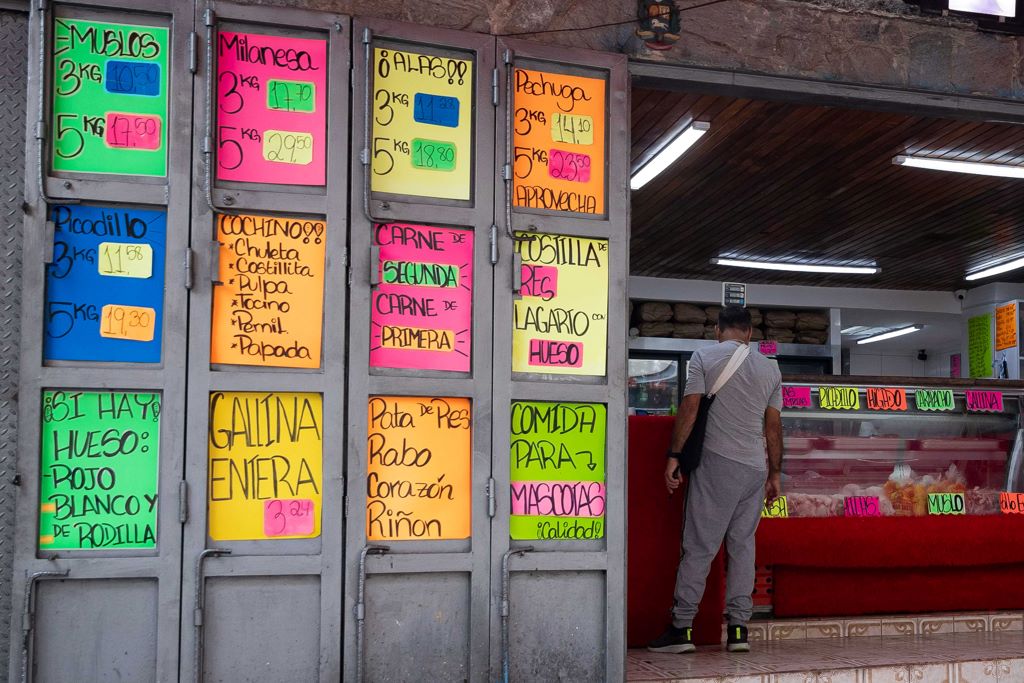 MUSLOS
3KG 10.50
5KG 17.50
Milanesa
3KG 17.70
5KG 29.50
¡¡ALAS!!
3KG 11.28
5KG 18.80
Pechuga
3KG 14.10
5KG 23.50
APROVECHA
Picadillo
3KG 11.58
5KG 19.30
COCHINO!!
*Chuleta
*Costillita
*Pulpa
*Tocino
*Pernil
*Papada
CARNE DE
SEGUNDA
CARNE DE
PRIMERA
COSTILLA DE
RES
LAGARTO CON
HUESO
¡SI HAY!
HUESO:
-ROJO
BLANCO Y
-DE RODILLA
GALLINA
ENTERA
3.24
Pata de Res
Rabo
Corazón
Riñon
COMIDA
PARA
MASCOTAS
¡Calidad!
PICADILLO
HIGADO
GALLINA
ALAS
MUSLO